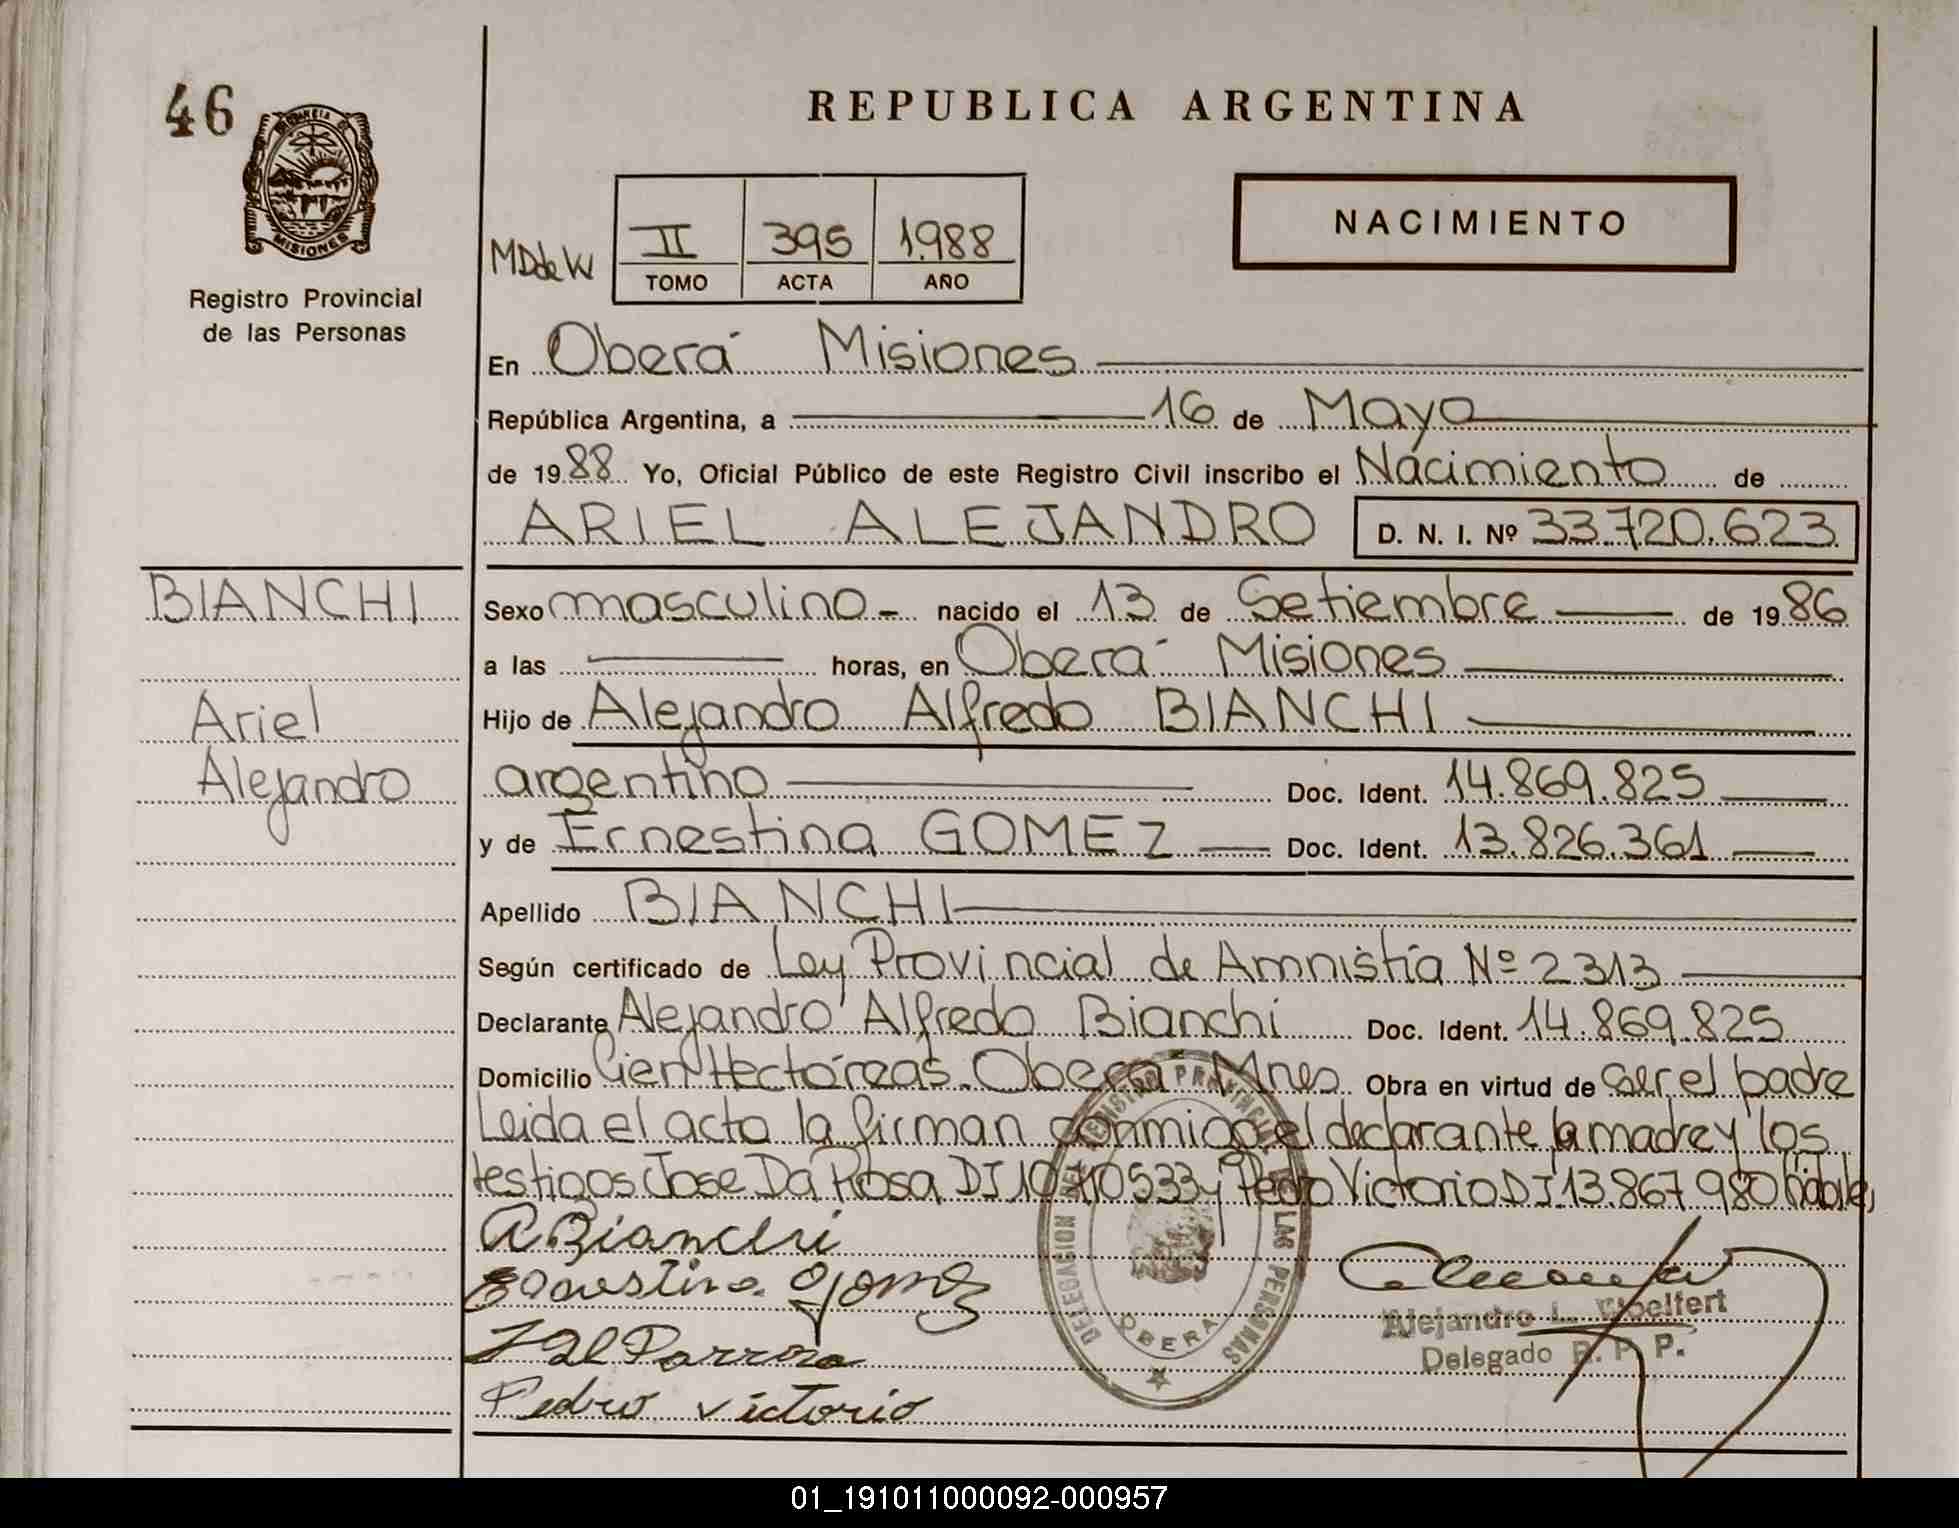 46
REPUBLICA ARGENTINA
PROVINCIA DE
MISIONES
Registro Provincial
de las Personas
NACIMIENTO
MDdeW
II 395 1988
TOMO ACTA AÑO
En Oberá Misiones
República Argentina, a 16 de Mayo
de 1988 Yo, Oficial Público de este Registro Civil inscribo el Nacimiento de
ARIEL ALEJANDRO D. N. I. Nº 33.720.623
BIANCHI
Ariel
Alejandro
Sexo masculino.- nacido el 13 de Setiembre de 1986
a las horas, en Oberá Misiones
Hijo de Alejandro Alfredo BIANCHI
argentino Doc. Ident. 14.869.825
y de Ernestina GOMEZ Doc. Ident. 13.826.361
Apellido BIANCHI
Según certificado de Ley Provincial de Amnistía Nº 2313
Declarante Alejandro Alfredo Bianchi Doc. Ident. 14.869.825
Domicilio Cien Hectóreas. Oberá Mnes Obra en virtud de ser el padre
Leida el acta la firman conmigo el declarante la madre y los
testigos Jose Da Rosa DI 10 533 y Pedro Victorio DI 13.867.980
A. Bianchi
Pedro victorio
DELEGACION DEL REGISTRO PROVINCIAL DE LAS PERSONAS
OBERA
Alejandro L. Woelfert
Delegado R. P. P.
01_191011000092-000957